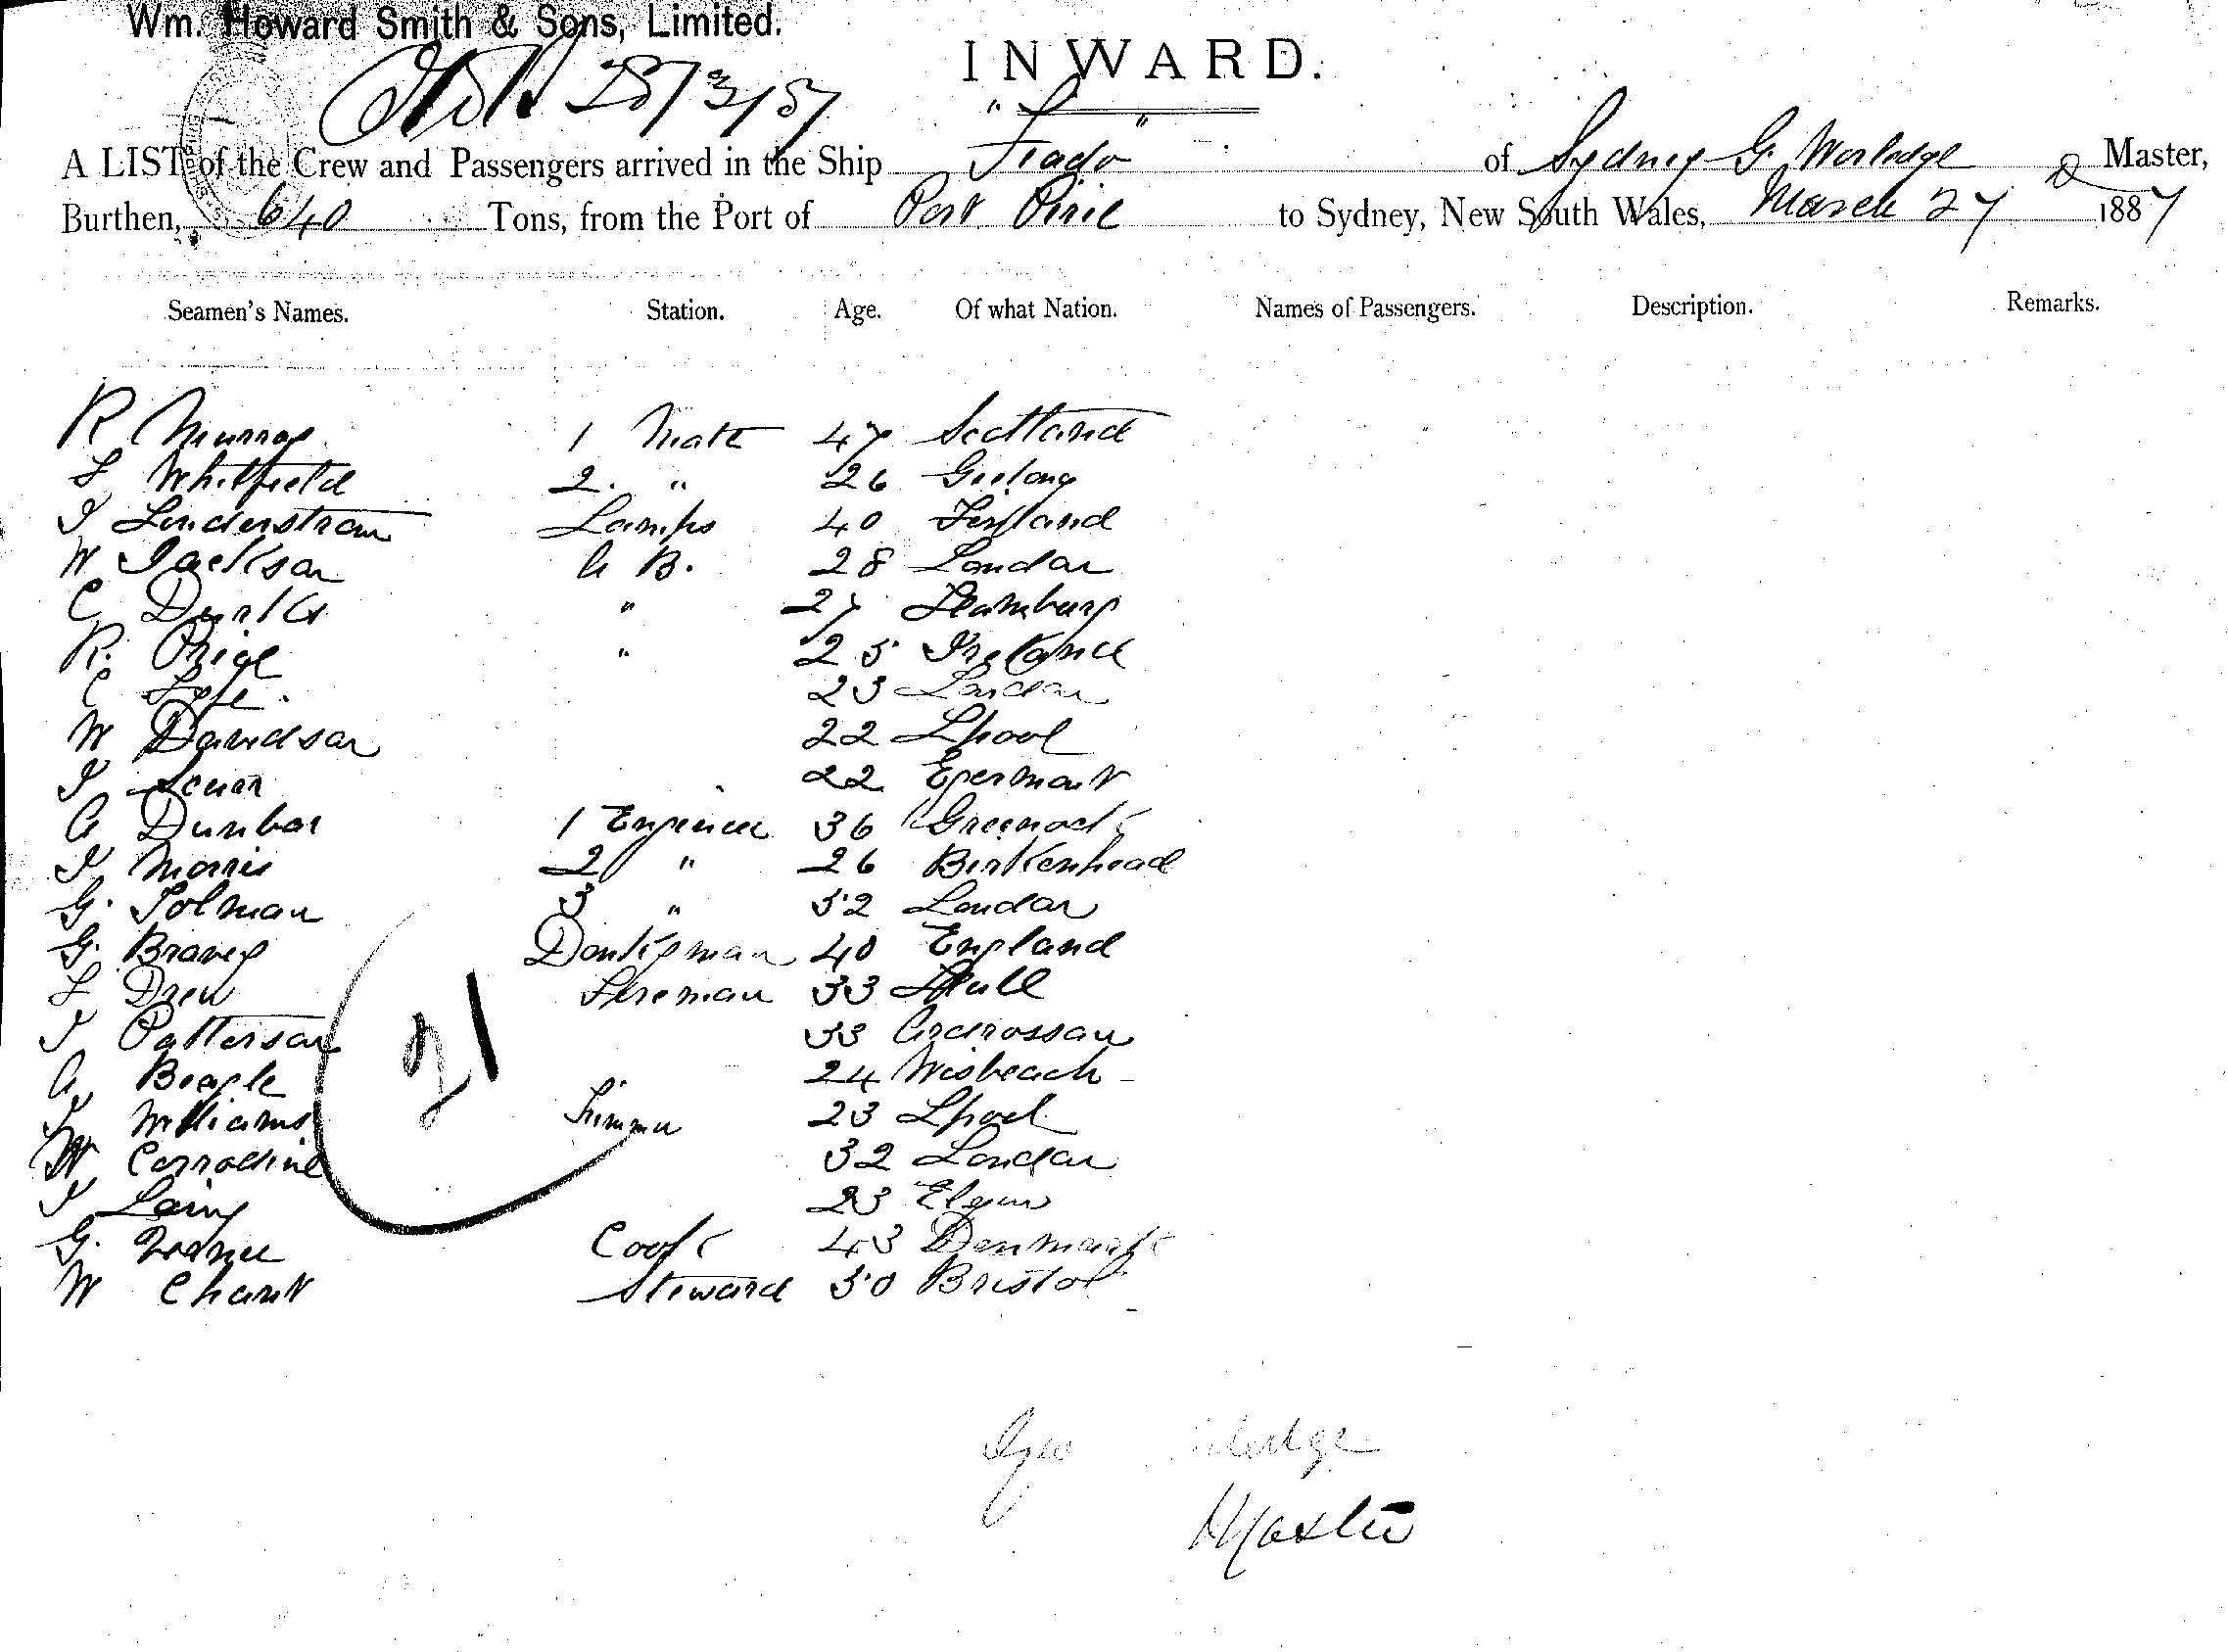 Wm. Howard Smith & Sons, Limited.
INWARD.
28/3/87
A LIST of the Crew and Passengers arrived in the Ship of Sydney G. Worledge Master,
Burthen, 640 Tons, from the Port of Port Pirie to Sydney, New South Wales, March 27 1887
Seamen's Names. Station. Age. Of what Nation. Names of Passengers. Description. Remarks.
R Murray 1 Mate 47 Scotland
Whitfield 2. " 26 Geelong
J Linderstrom Lamps 40 Finland
W Jackson A B. 28 London
C " 27 Hamburg
R. Price " 25 Ireland
C 23 London
W Davidson 22 Lpool
J 22 Egermont
A Dunbar 1 Engineer 36 Greenock
J Morris 2 " 26 Birkenhead
G. Tolman 3 " 52 London
G. Bravey Donkeyman 40 England
Drew Fireman 33 Hull
J Patterson 33 Ardrossan
A. Beagle 24 Wisbeach
Williams Trimmer 23 Lpool
W Corradine 32 London
J Laing 23 Elgin
G. Cook 43 Denmark
W Chant Steward 50 Bristol
21
Geo
Master